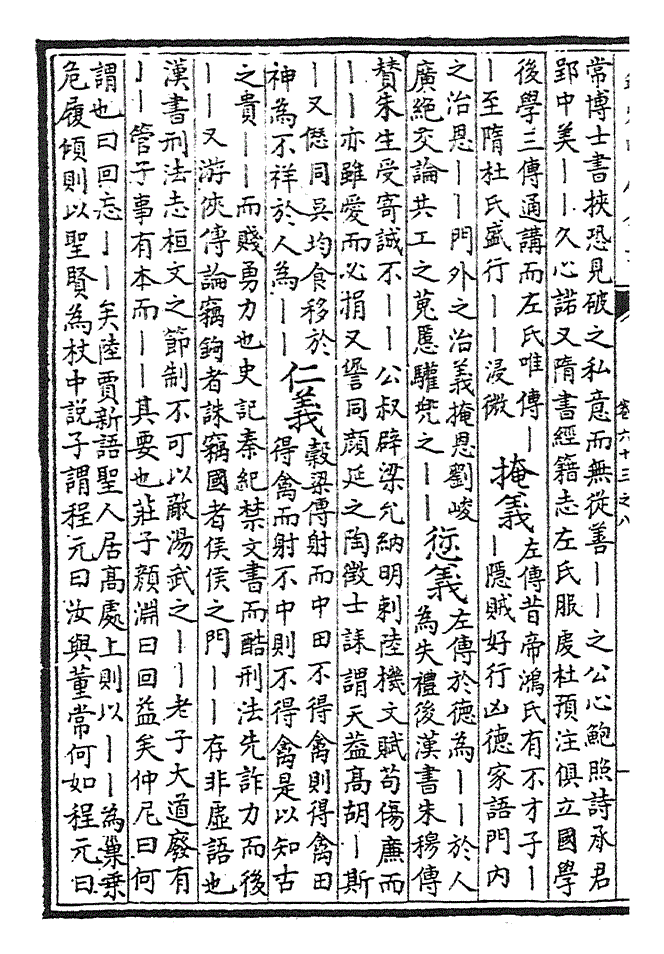 常博士書挾恐見破之私意而無從善丨丨之公心鮑照詩承君
郢中美丨丨久心諾又隋書經籍志左氏服虔杜預注俱立國學
後學三傳通講而左氏唯傳丨
丨至隋杜氏盛行丨丨浸微
掩義
左傳昔帝鴻氏有不才子丨
丨隱賊好行凶德家語門內
之治恩丨丨門外之治義掩恩劉峻
廣絶交論共工之蒐慝驩兠之丨丨
愆義
左傳於德為丨丨於人
為失禮後漢書朱穆傳
贊朱生受寄誠不丨丨公叔辟梁允納明刺陸機文賦苟傷廉而
丨丨亦雖愛而必捐又諐同顔延之陶徵士誄謂天益高胡丨斯
丨又僁同吳均食移於
神為不祥於人為丨丨
仁義
穀梁傳射而中田不得禽則得禽田
得禽而射不中則不得禽是以知古
之貴丨丨而賤勇力也史記秦紀禁文書而酷刑法先詐力而後
丨丨又游俠傳論竊鉤者誅竊國者侯侯之門丨丨存非虛語也
漢書刑法志桓文之節制不可以敵湯武之丨丨老子大道廢有
丨丨管子事有本而丨丨其要也莊子顔淵曰回益矣仲尼曰何
謂也曰回忘丨丨矣陸賈新語聖人居高處上則以丨丨為巢乗
危履傾則以聖賢為杖中說子謂程元曰汝與董常何如程元曰